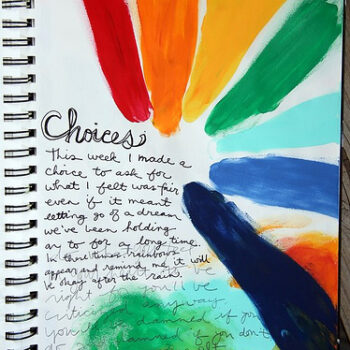 Choices
This week I made a
choice to ask for
what I felt was fair
even if it meant
letting go of a dream
we've been holding
on to for a long time.
In three times rainbows
appear and remind me it will
be okay after the rain
right you'll be
criticized anyway
you'll be damned if you
do damned if you don't